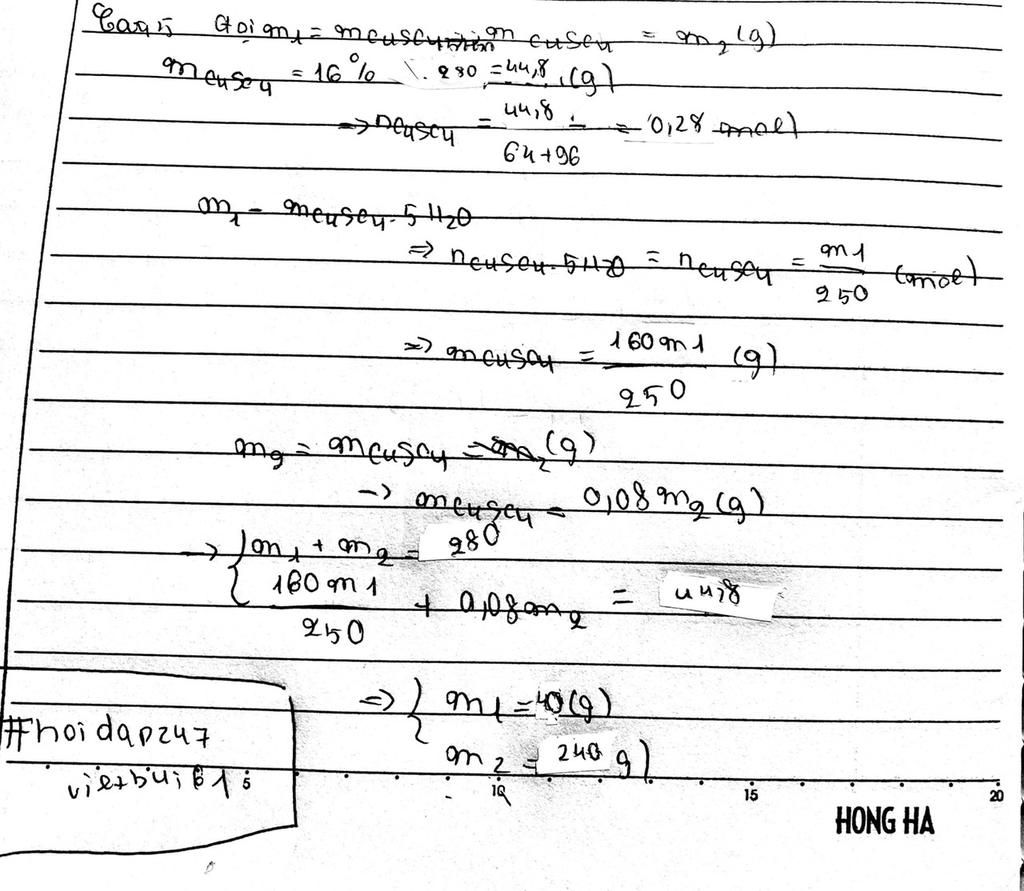 Câu 5 Gọi m1 = mCuSO4 m CuSO4 = m2 (g)
mCuSO4 = 16% . 280 = 44,8 (g)
=> nCuSO4 = 44,8 / 64+96 = 0,28 mol)
m1 = mCuSO4.5H2O
=> nCuSO4.5H2O = nCuSO4 = m1 / 250 (mol)
=> mCuSO4 = 160m1 / 250 (g)
m2 = mCuSO4 = m2 (g)
-> mCuSO4 = 0,08m2 (g)
-> { m1 + m2 = 280
160m1 / 250 + 0,08m2 = 44,8
=> { m1 = 40(g)
m2 = 240 g)
#hoidap247
vietbui81
5 10 15 20
HONG HA